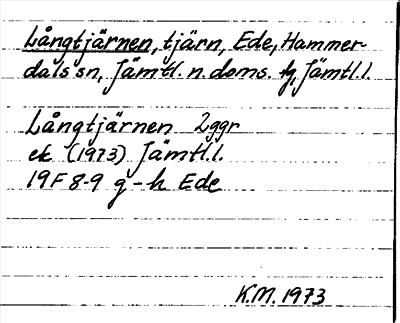 Långtjärnen, tjärn, Ede, Hammer-
dals sn, Jämtl. n. doms. tg, Jämtl.l.
Långtjärnen 2ggr
ek (1973) Jämtl.l.
19F 8-9 g-h Ede
K.M. 1973